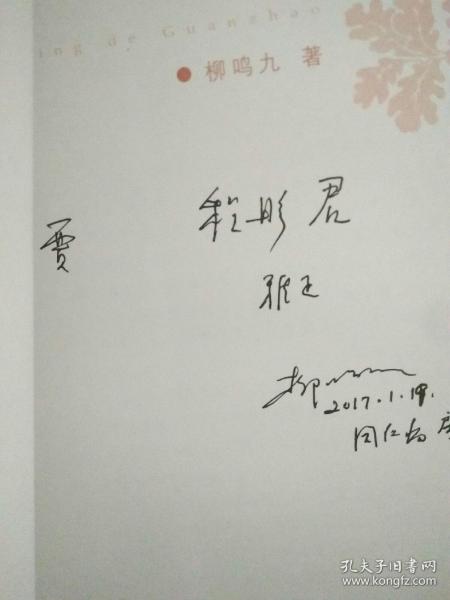 ing de Guanzhao
柳鸣九 著
贾 程彤君
雅正
柳鸣九
2017.1.19.
同仁病房
孔夫子旧书网
www.kongfz.com